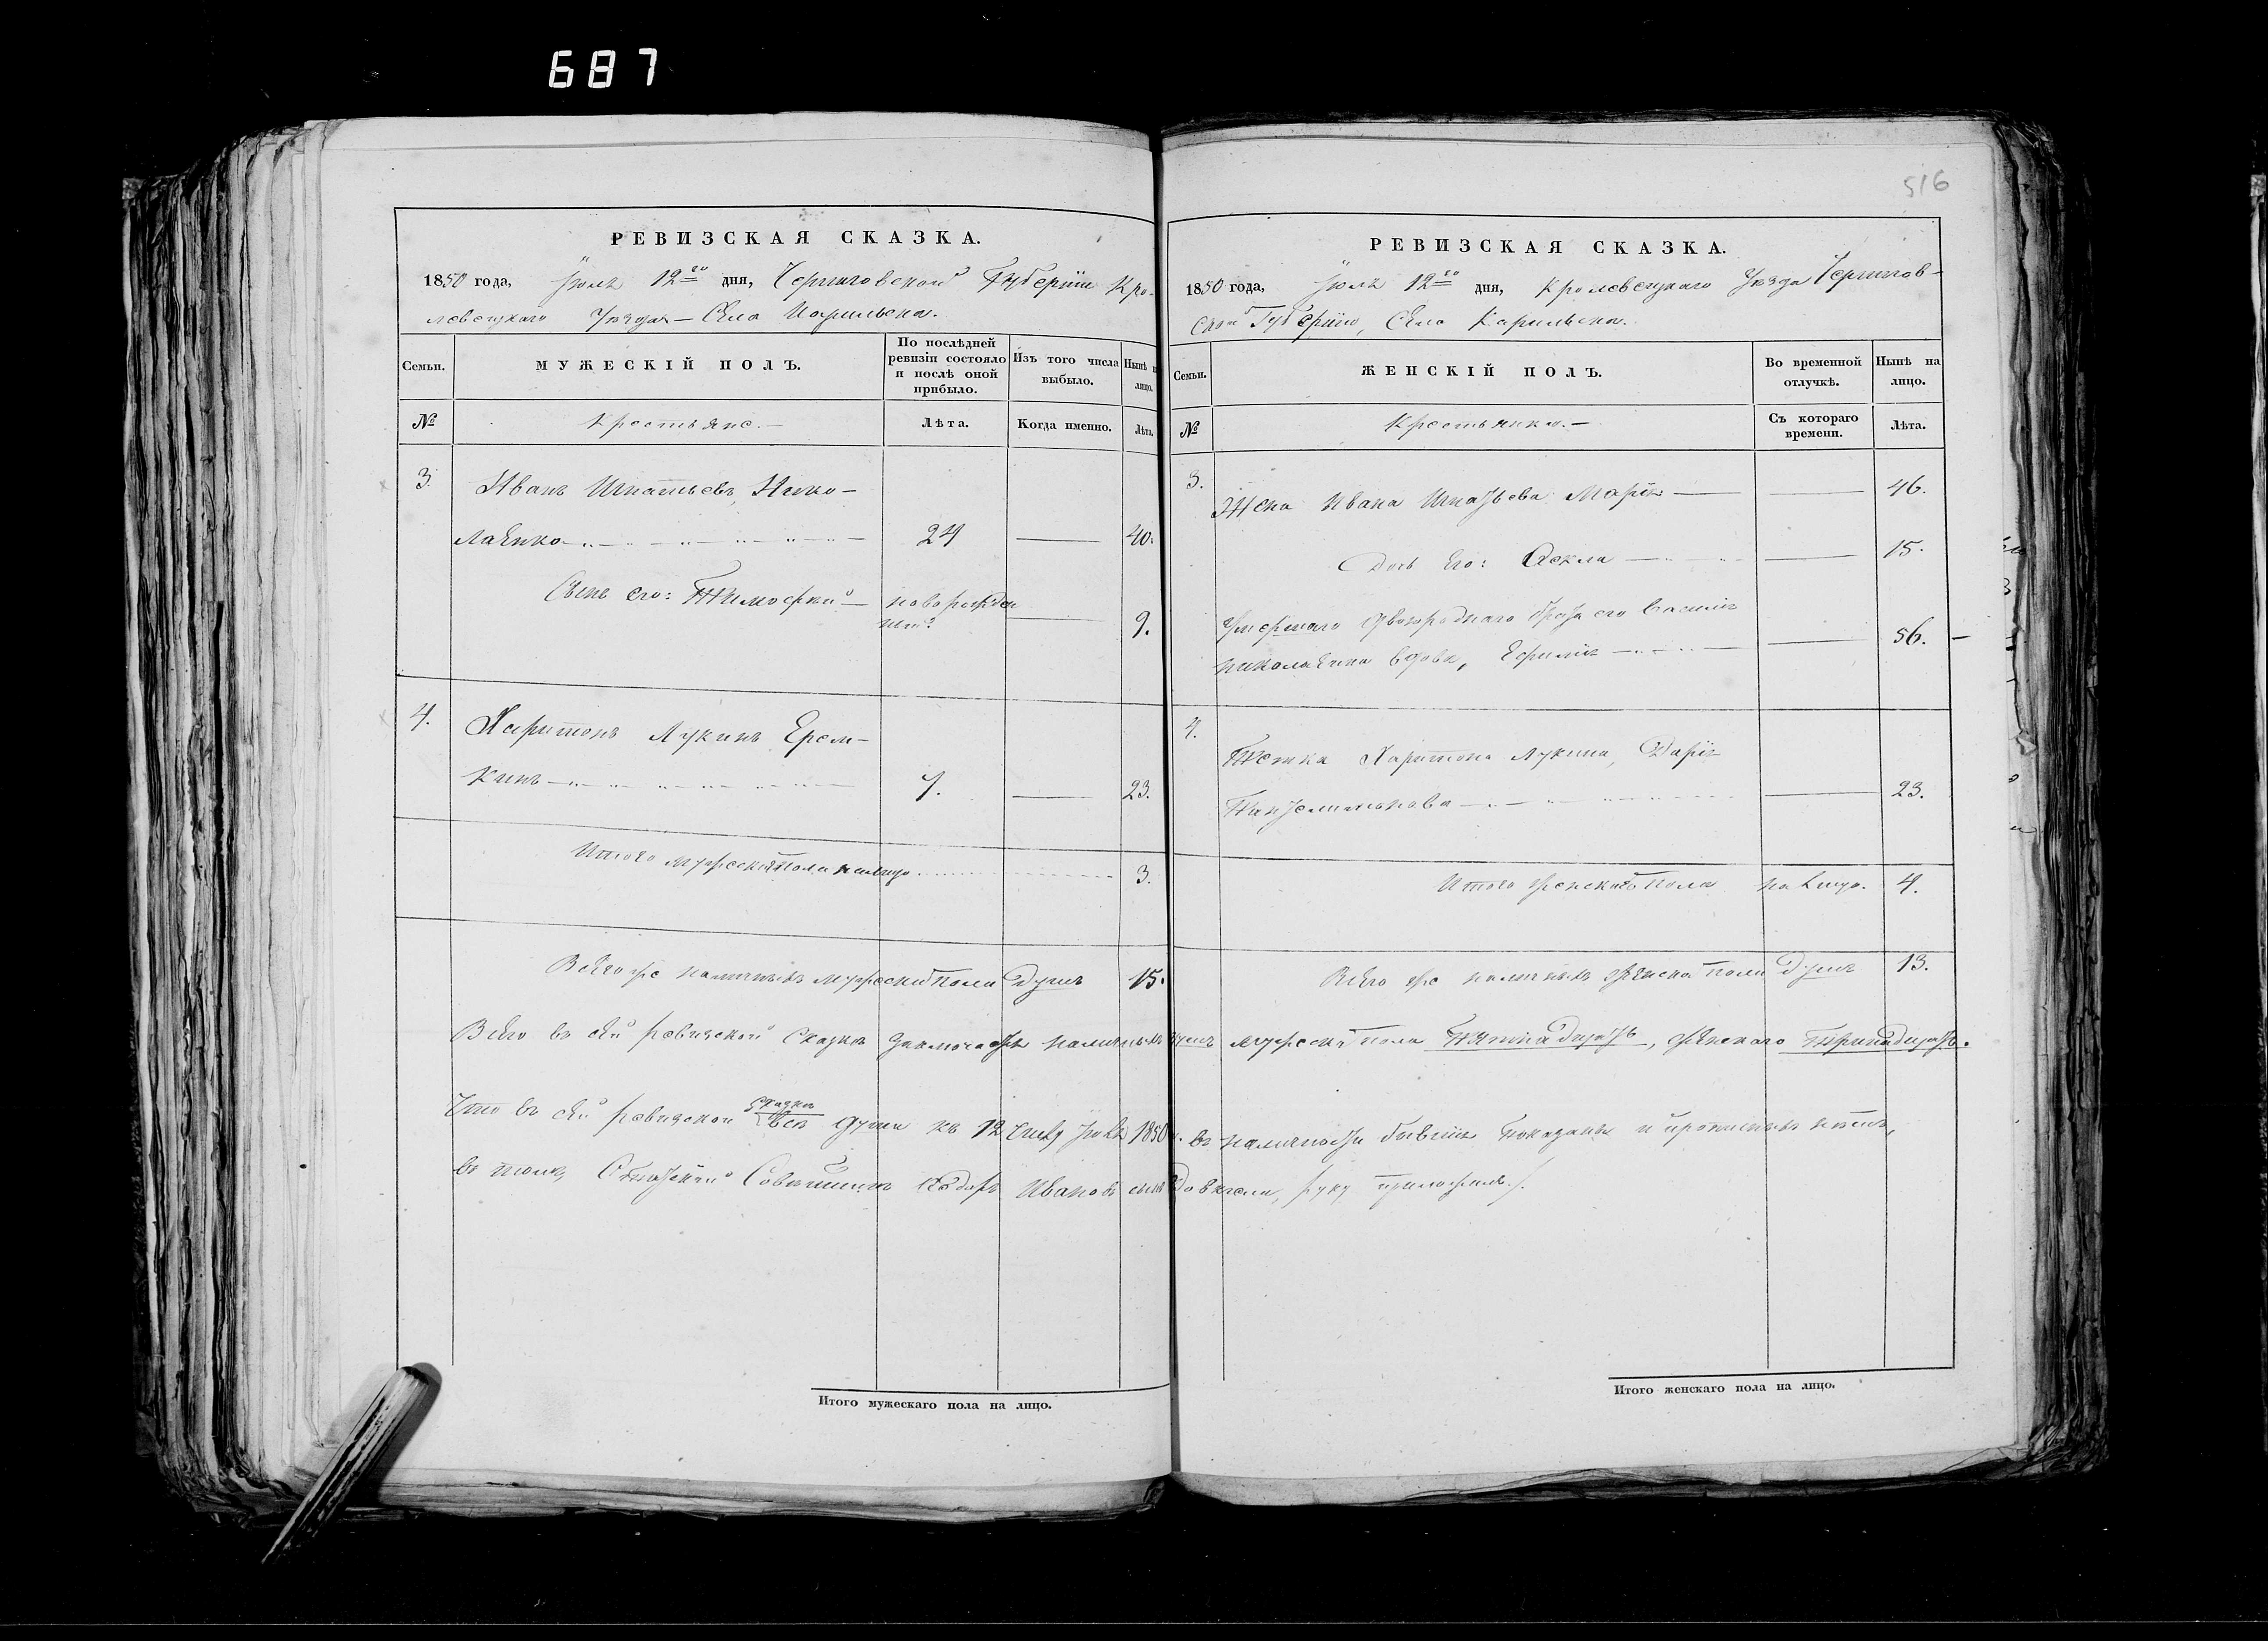 687
516
РЕВИЗСКАЯ СКАЗКА.
1850 года, Іюля 12го дня, Черниговской Губерніи Кро-
левецкаго Уѣзда — Села Карильска.
Семьи.
МУЖЕСКІЙ ПОЛЪ.
По послѣдней ревизіи состояло и послѣ оной прибыло.
Изъ того числа выбыло.
Нынѣ на лицо.
№
Крестьяне. —
Лѣта.
Когда именно.
Лѣта.
3. Иванъ Игнатьевъ, Нико-
лаенко 24 — 40.
Сынъ его: Тимофей — новорожден 9.
4. Харитонъ Лукинъ Ерем-
кинъ 7. — 23.
Итого мужеска пола на лицо 3.
Всего же наличныхъ мужеска пола Душъ 15.
РЕВИЗСКАЯ СКАЗКА.
1850 года, Іюля 12го дня, Кролевецкаго Уѣзда Чернигов-
ской Губерніи, Села Карильска.
Семьи.
ЖЕНСКІЙ ПОЛЪ.
Во временной отлучкѣ.
Нынѣ на лицо.
№
Крестьянки. —
Съ котораго времени.
Лѣта.
3. Жена Ивана Игнатьева Марія — — 46.
Дочь его: Фекла — — 15.
Умершаго двоюроднаго брата его Василія
Николаенка вдова, Ефимія — — 56. —
4. Тетка Харитона Лукина, Дарія
— 23.
Итого женска пола на лицо. 4.
Всего же наличныхъ женска пола Душъ 13.
Всего въ сей ревизской Сказкѣ заключается наличныхъ душъ мужеска пола Пятнадцать, женскаго Тринадцать.
Что въ сей ревизской Сказкѣ всѣ души къ 12 числу Іюля 1850 г. въ наличности бывшіе показаны и прописныхъ нѣтъ,
въ томъ Иванов сынъ руку приложилъ.
Итого мужескаго пола на лицо.
Итого женскаго пола на лицо.